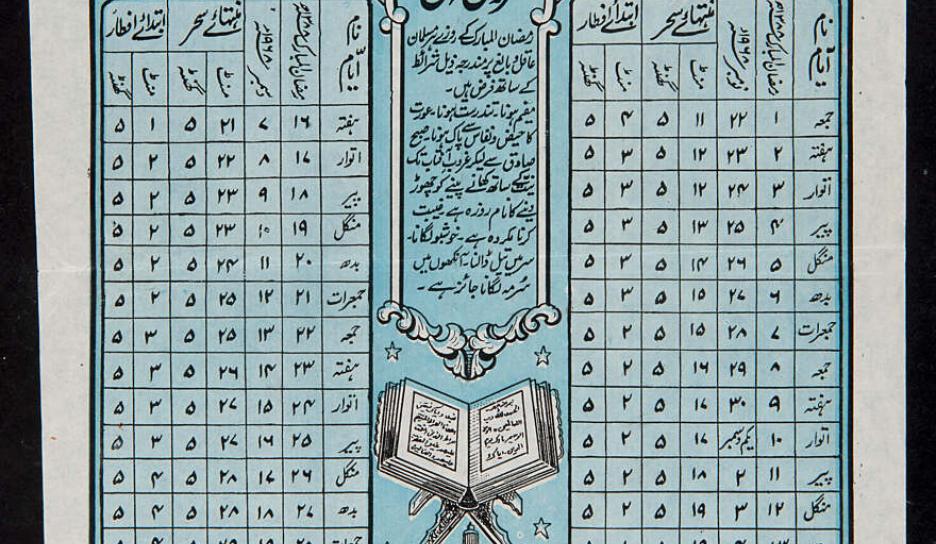 نام ایام رمضان المبارک ۱۳۸۸ھ نومبر ۱۹۶۸ء منتہائے سحر ابتدائے افطار
منٹ گھنٹہ منٹ گھنٹہ
جمعہ ۱ ۲۲ ۱۱ ۵ ۴ ۵
ہفتہ ۲ ۲۳ ۱۲ ۵ ۳ ۵
اتوار ۳ ۲۴ ۱۲ ۵ ۳ ۵
پیر ۴ ۲۵ ۱۳ ۵ ۳ ۵
منگل ۵ ۲۶ ۱۴ ۵ ۳ ۵
بدھ ۶ ۲۷ ۱۵ ۵ ۳ ۵
جمعرات ۷ ۲۸ ۱۵ ۵ ۲ ۵
جمعہ ۸ ۲۹ ۱۶ ۵ ۲ ۵
ہفتہ ۹ ۳۰ ۱۷ ۵ ۲ ۵
اتوار ۱۰ یکم دسمبر ۱۷ ۵ ۲ ۵
پیر ۱۱ ۲ ۱۸ ۵ ۲ ۵
منگل ۱۲ ۳ ۱۹ ۵ ۲ ۵
رمضان المبارک کے روزے ہر مسلمان
عاقل و بالغ پر مندرجہ ذیل شرائط
کے ساتھ فرض ہیں۔
مقیم ہونا۔ تندرست ہونا۔ عورت
کا حیض و نفاس سے پاک ہونا۔ صبح
صادق سے لیکر غروب آفتاب تک
نیت کے ساتھ کھانے پینے کو چھوڑ
دینے کا نام روزہ ہے۔ غیبت
کرنا مکروہ ہے۔ خوشبو لگانا۔
سر میں تیل ڈالنا۔ آنکھوں میں
سُرمہ لگانا جائز ہے۔
نام ایام رمضان المبارک ۱۳۸۸ھ دسمبر ۱۹۶۸ء منتہائے سحر ابتدائے افطار
منٹ گھنٹہ منٹ گھنٹہ
ہفتہ ۱۶ ۷ ۲۱ ۵ ۱ ۵
اتوار ۱۷ ۸ ۲۲ ۵ ۲ ۵
پیر ۱۸ ۹ ۲۳ ۵ ۲ ۵
منگل ۱۹ ۱۰ ۲۳ ۵ ۲ ۵
بدھ ۲۰ ۱۱ ۲۴ ۵ ۲ ۵
جمعرات ۲۱ ۱۲ ۲۵ ۵ ۲ ۵
جمعہ ۲۲ ۱۳ ۲۵ ۵ ۳ ۵
ہفتہ ۲۳ ۱۴ ۲۶ ۵ ۳ ۵
اتوار ۲۴ ۱۵ ۲۷ ۵ ۳ ۵
پیر ۲۵ ۱۶ ۲۷ ۵ ۳ ۵
منگل ۲۶ ۱۷ ۲۸ ۵ ۴ ۵
بدھ ۲۷ ۱۸ ۲۸ ۵ ۴ ۵